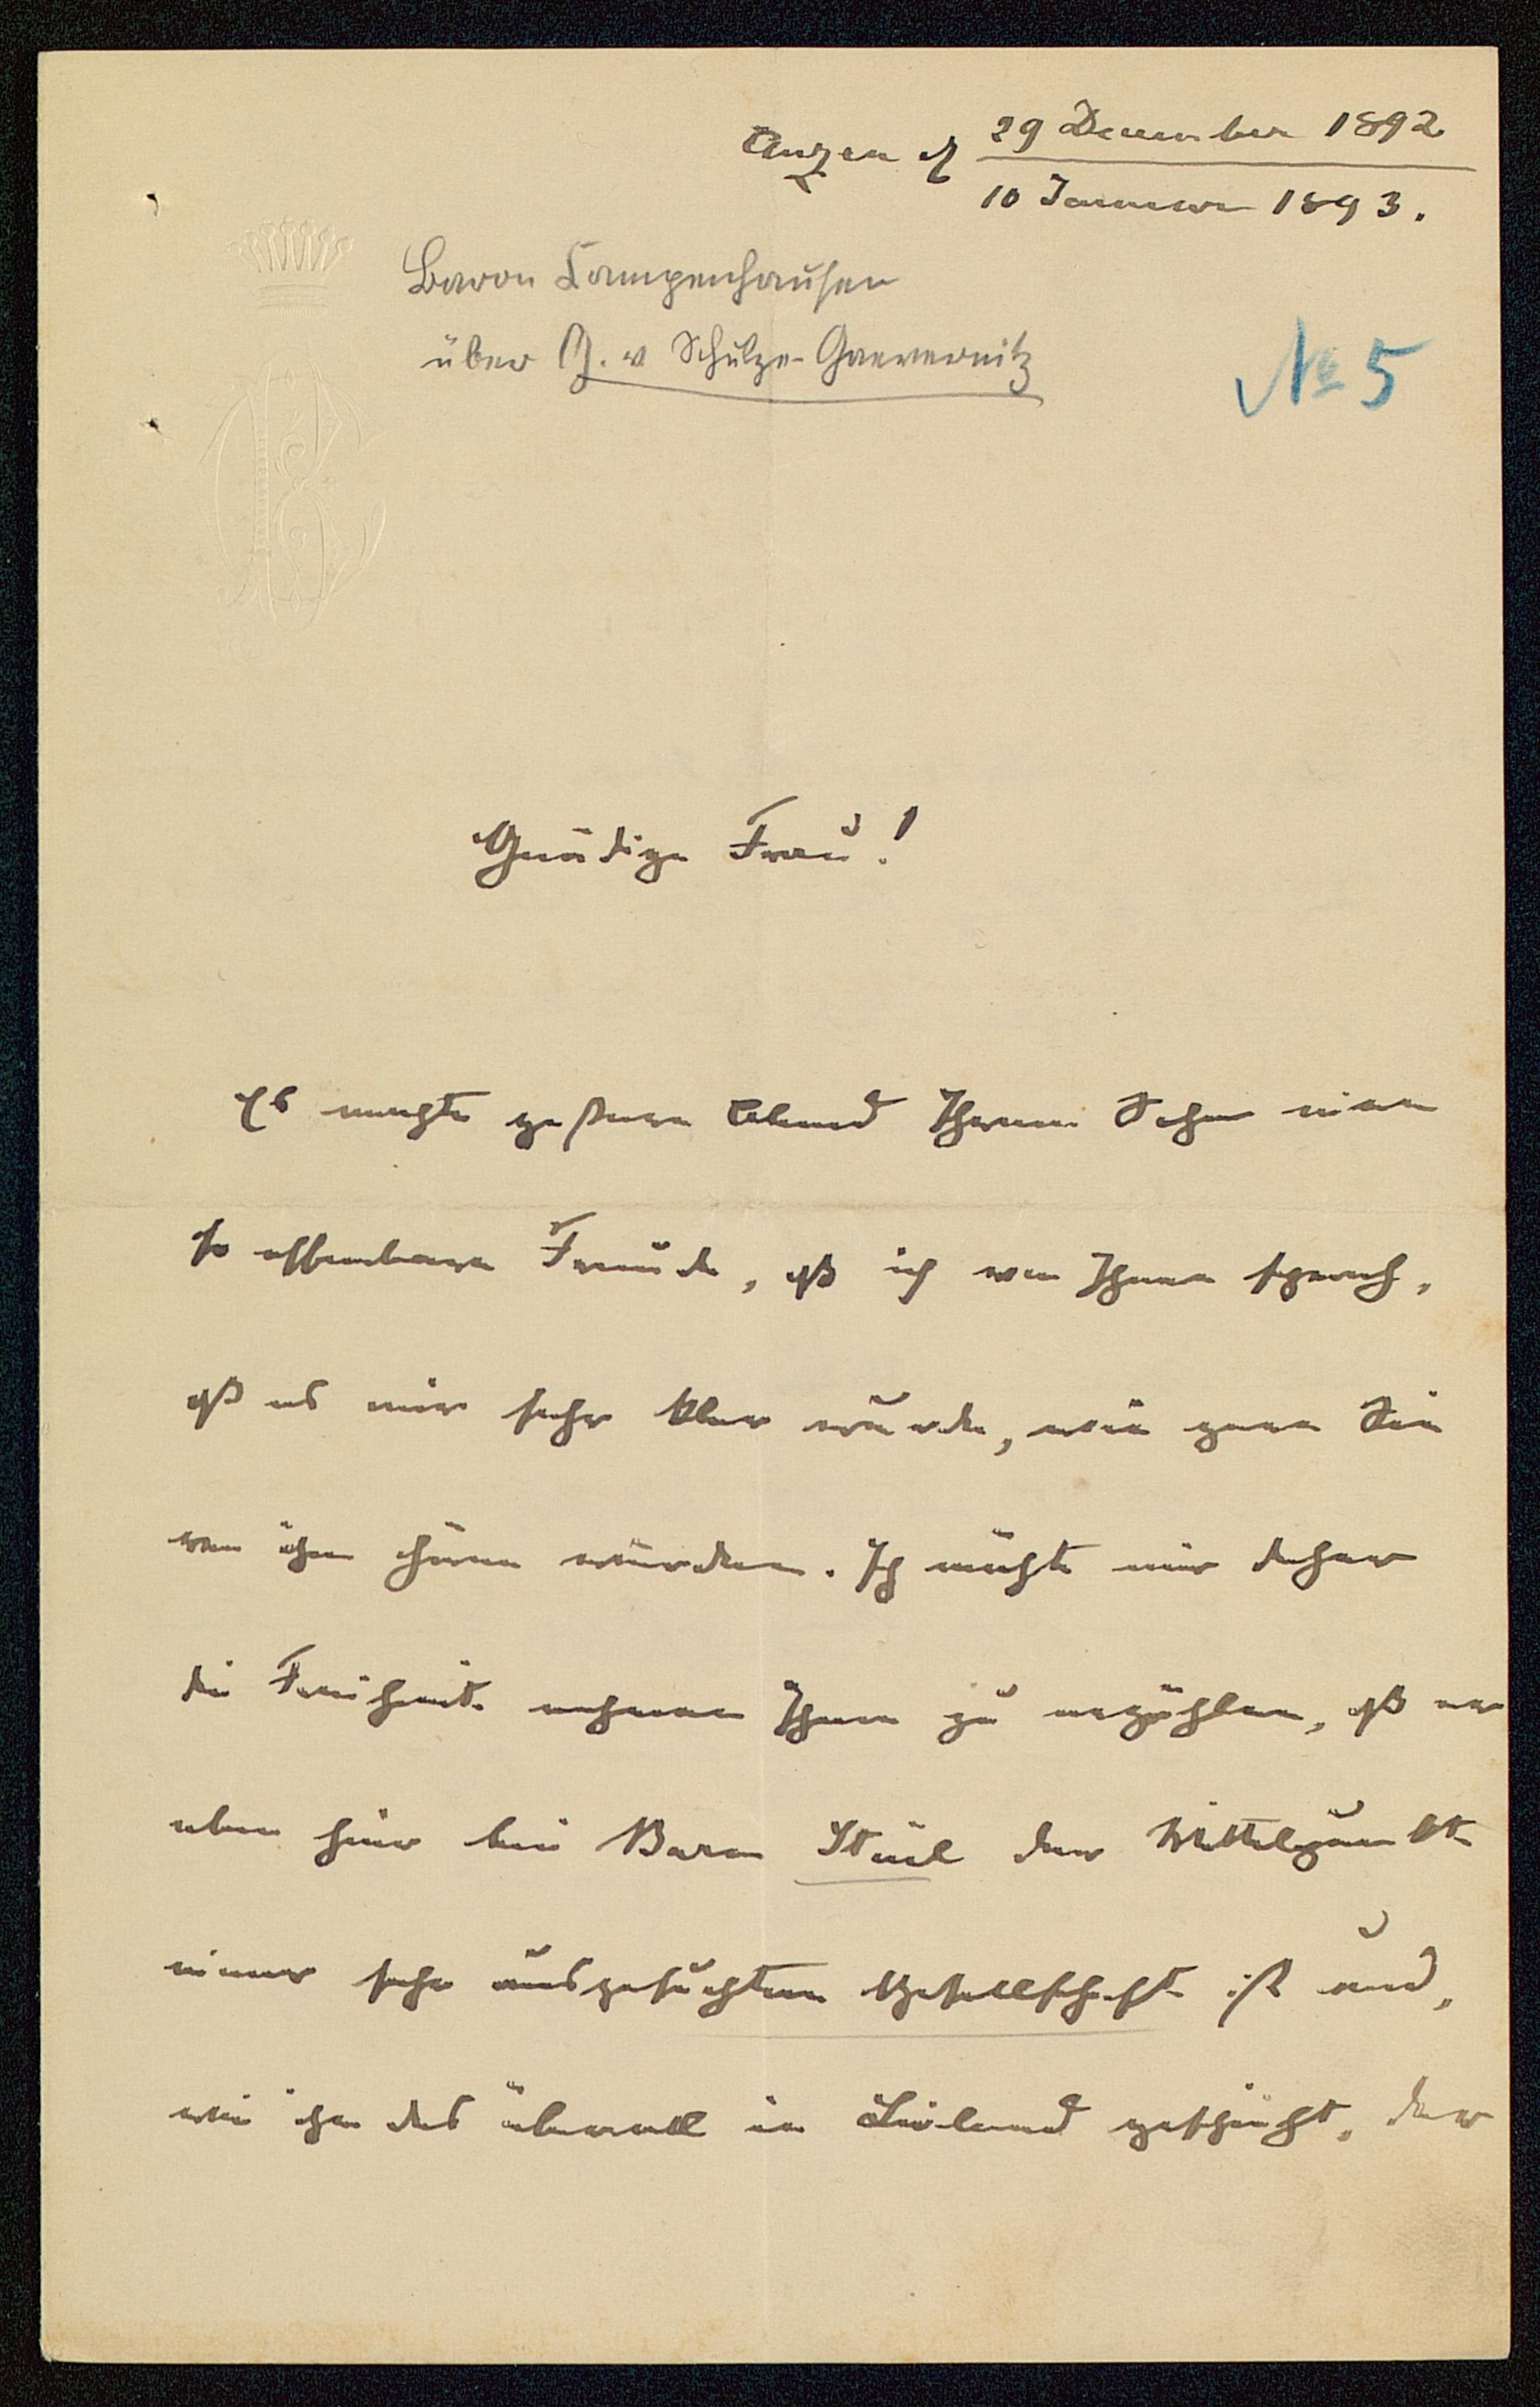 Anzen d 29 December 1892
10 Januar 1893.
Baron Campenhausen
über G. v Schulze-Gaevernitz
№ 5
Gnädige Frau!
Es machte gestern Abend Ihrem Sohn eine
so offenbare Freude, daß ich von Ihnen sprach,
daß es mir sehr klar wurde, wie gern Sie
von ihm hören würden. Ich möchte mir daher
die Freiheit nehmen Ihnen zu erzählen, daß er
eben hier bei Baron Stäel der Mittelpunkt
einer sehr ausgesuchten Gesellschaft ist und,
wie ihm das überall in Livland geschieht, der